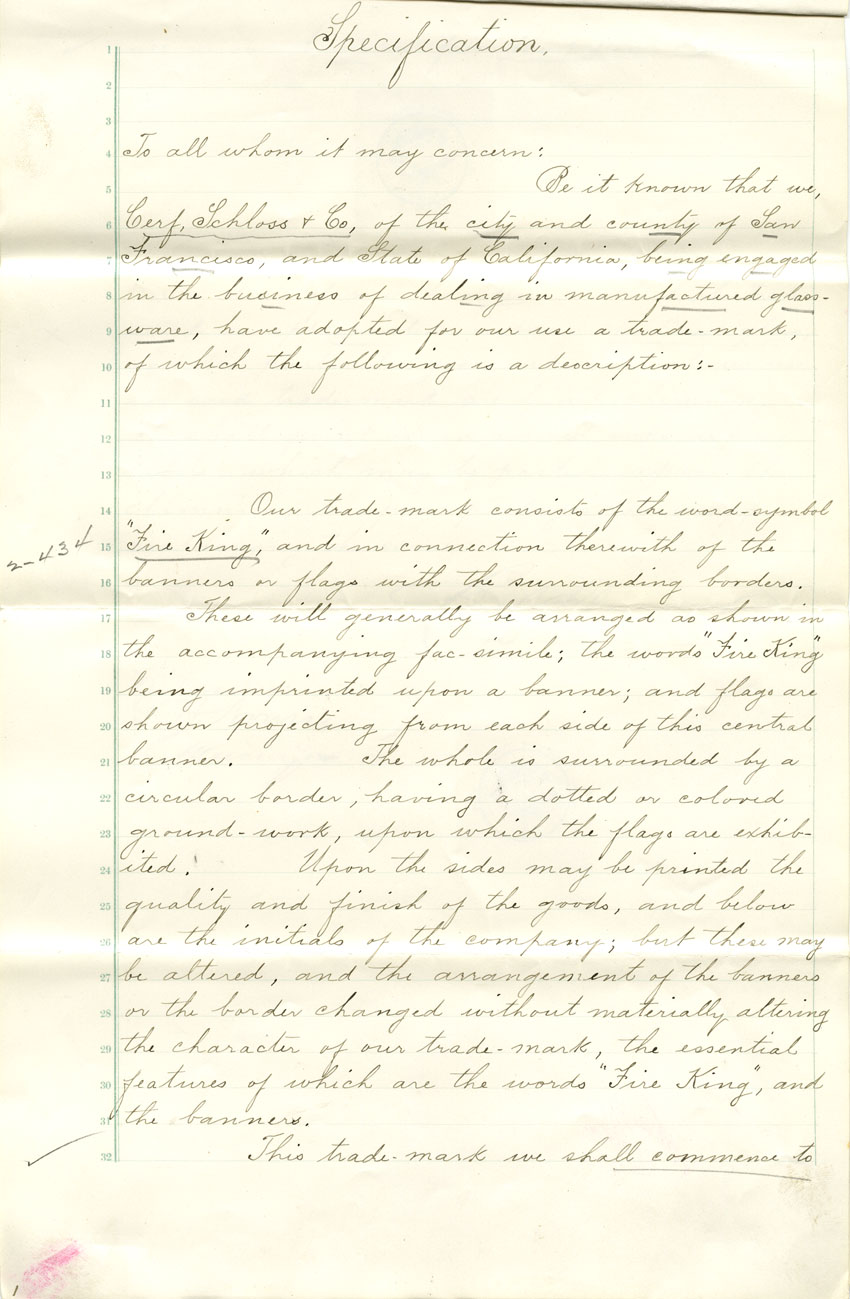 Specification.
1
2
3
4 To all whom it may concern:
5 Be it known that we,
6 Cerf, Schloss & Co, of the city and county of San
7 Francisco, and State of California, being engaged
8 in the business of dealing in manufactured glass-
9 ware, have adopted for our use a trade-mark,
10 of which the following is a description:-
11
12
13
14 Our trade-mark consists of the word-symbol
2-434
15 "Fire King", and in connection therewith of the
16 banners or flags with the surrounding borders.
17 These will generally be arranged as shown in
18 the accompanying fac-simile; the words "Fire King"
19 being imprinted upon a banner; and flags are
20 shown projecting from each side of this central
21 banner. The whole is surrounded by a
22 circular border, having a dotted or colored
23 ground-work, upon which the flags are exhib-
24 ited. Upon the sides may be printed the
25 quality and finish of the goods, and below
26 are the initials of the company; but these may
27 be altered, and the arrangement of the banners
28 or the border changed without materially altering
29 the character of our trade-mark, the essential
30 features of which are the words "Fire King", and
31 the banners.
32 This trade-mark we shall commence to